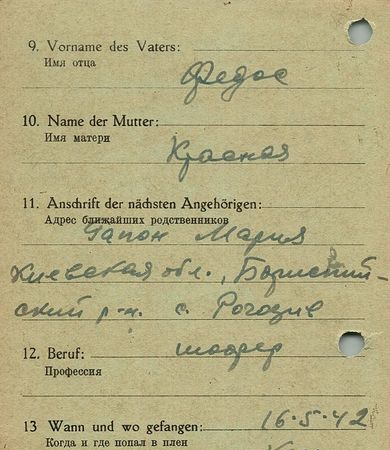 9. Vorname des Vaters:
Имя отца
Федос
10. Name der Mutter:
Имя матери
Красная
11. Anschrift der nächsten Angehörigen:
Адрес ближайших родственников
Гапон Мария
Киевская обл., Бориспий-
ский р-н. с. Рогозив
12. Beruf:
шофер
Профессия
13 Wann und wo gefangen: 16-5-42
Когда и где попал в плен